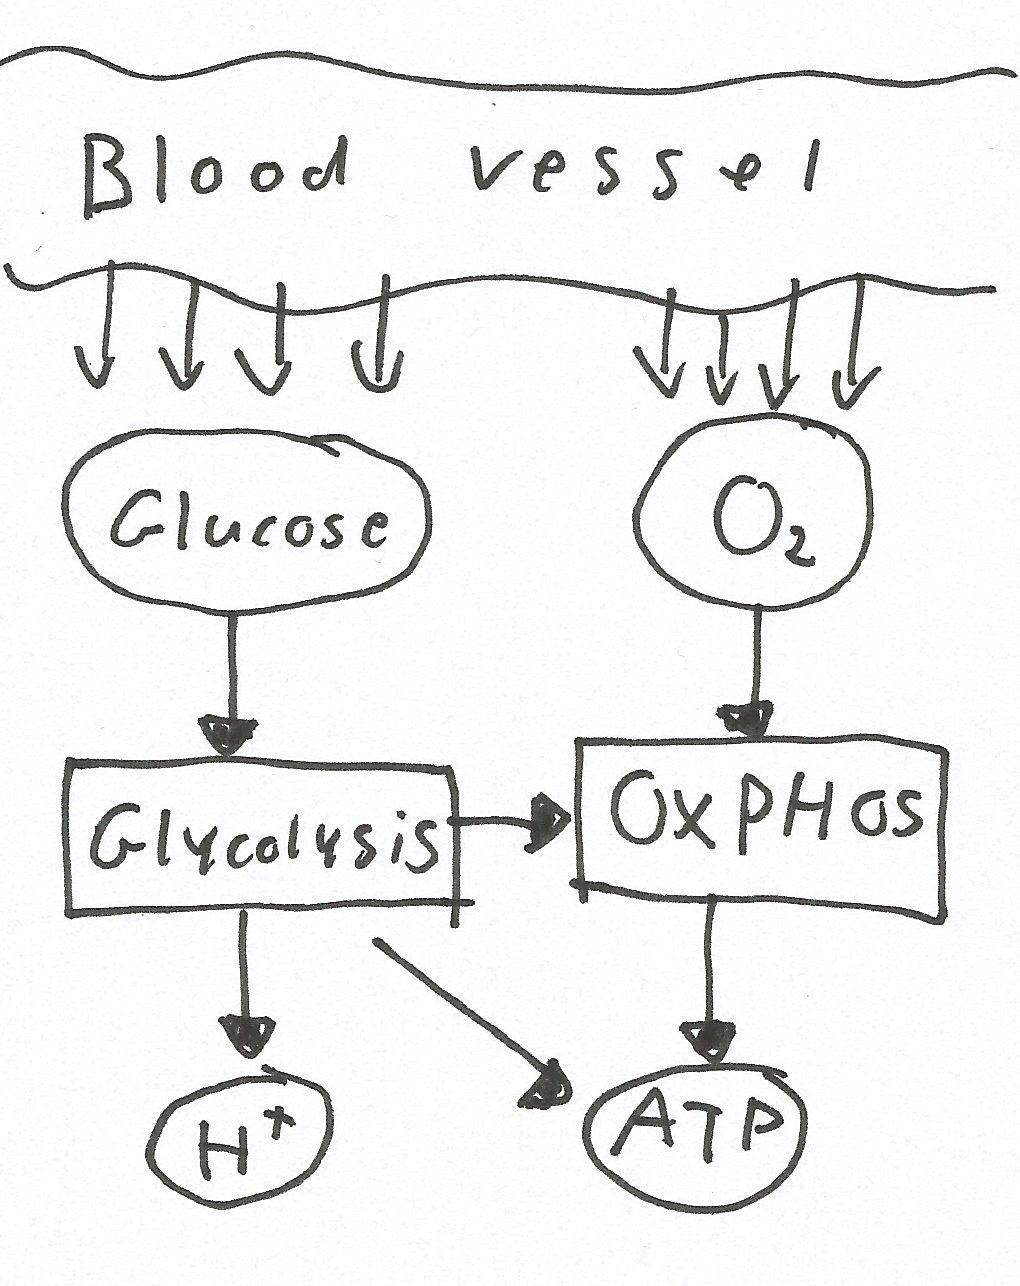 Blood vessel
Glucose
O₂
Glycolysis
OxPHos
H⁺
ATP